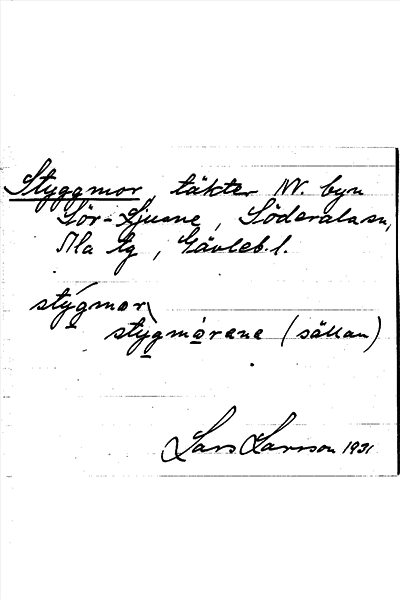 Styggmor, täkter NV. byn
Sör-Ljusne, Söderala sn,
Ala tg, Gävleb. l.
stygmor
stygmorane (sällan)
Lars Larsson 1931